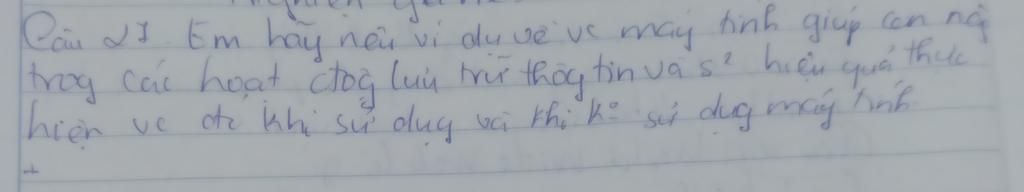 Câu 27. Em hãy nêu ví dụ về vc máy tính giúp con ng
trog các hoạt độg lưu trữ thôg tin và s² hiệu quả thực
hiện vc đó khi sử dụg và khi kº sử dụg máy tính
+